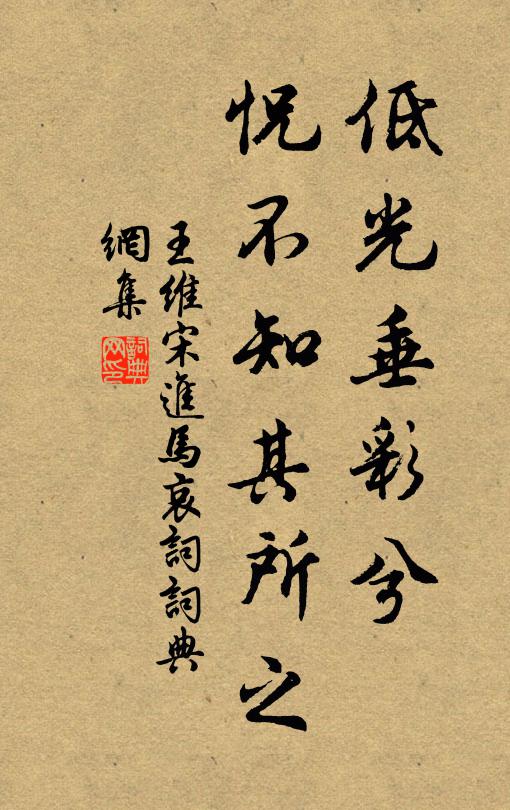 低光垂彩兮
怳不知其所之
王維宋進馬哀詞詞典
網集
詞典
网印